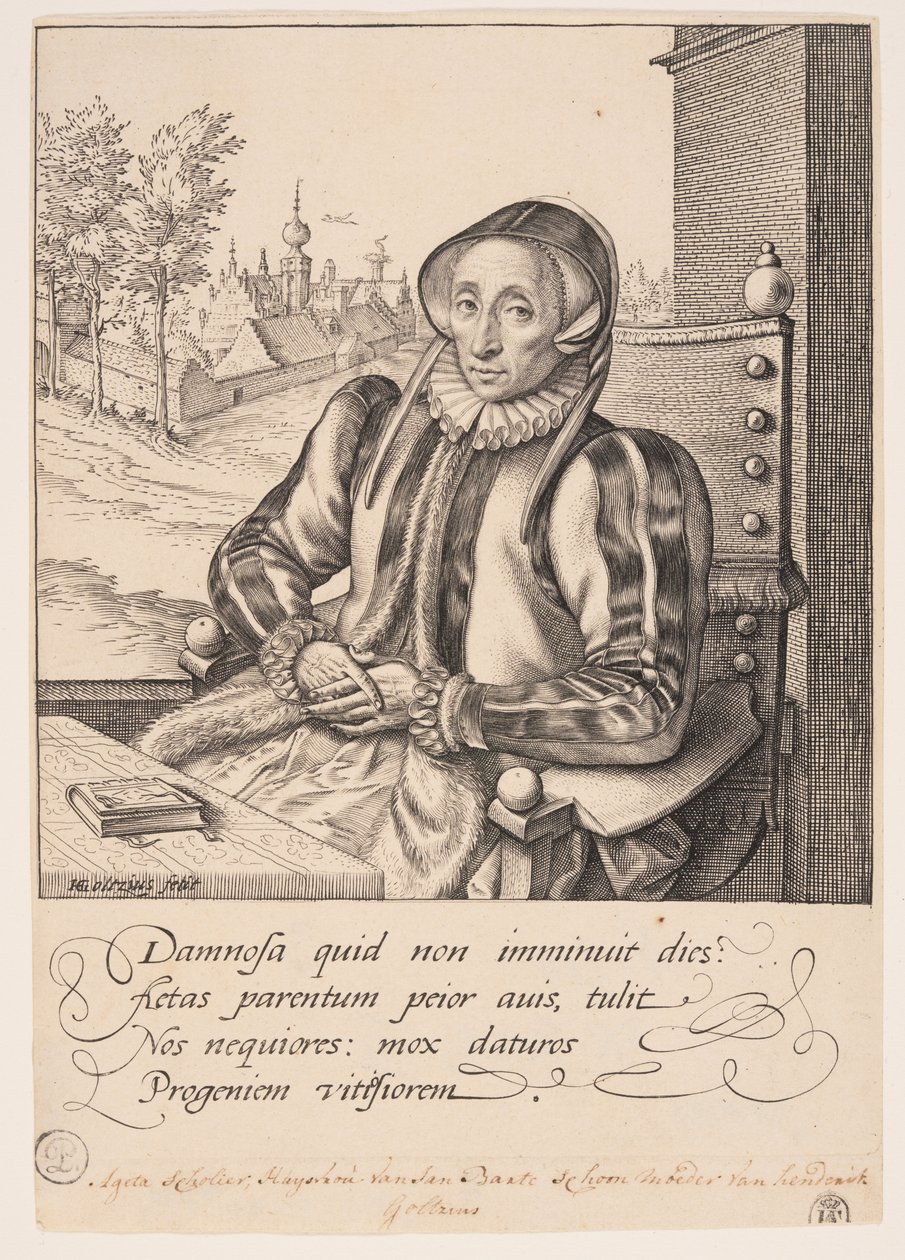 HGoltzius fecit
Damnosa quid non imminuit dies?
Aetas parentum peior avis, tulit
Nos nequiores: mox daturos
Progeniem vitiosiorem.
Ageta Scholier, Huysvrou van Jan Baate Schoon moeder van henderik
Goltzius